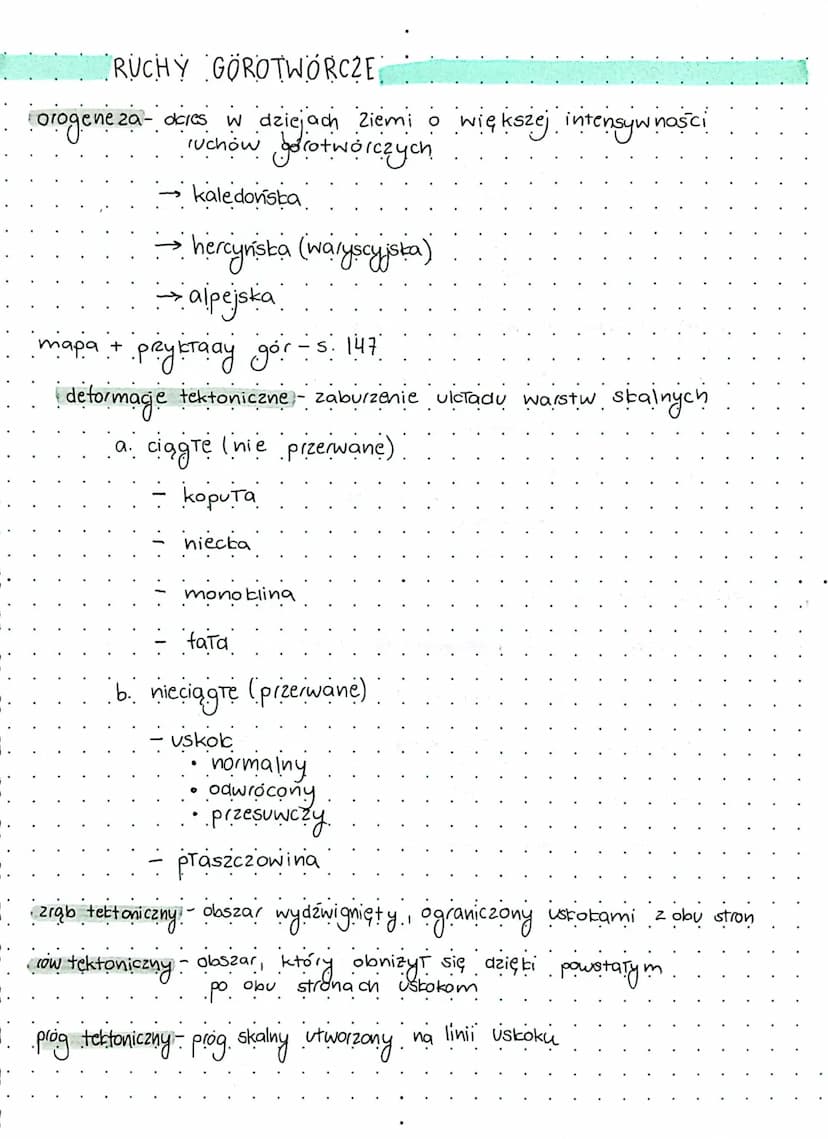 RUCHY GÓROTWÓRCZE
orogeneza - okres w dziejach Ziemi o większej intensywności
ruchów górotwórczych
→ kaledońska
→ hercyńska (waryscyjska)
→ alpejska
mapa + przykłady gór - s. 147
deformacje tektoniczne - zaburzenie układu warstw skalnych
a. ciągłe (nie przerwane)
- kopuła
- niecka
- monoklina
- fałd
b. nieciągłe (przerwane)
- uskok
• normalny
• odwrócony
• przesuwczy
- płaszczowina
zrąb tektoniczny - obszar wydźwignięty, ograniczony uskokami z obu stron
rów tektoniczny - obszar, który obniżył się dzięki powstałym
po obu stronach uskokom
próg tektoniczny - próg skalny utworzony na linii uskoku